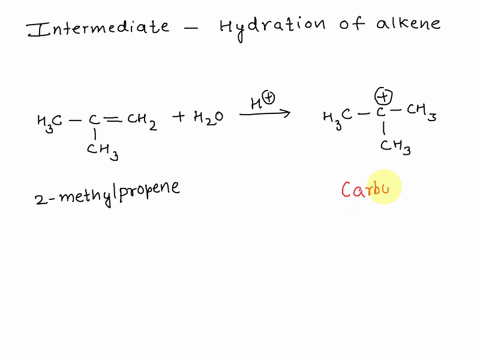 Intermediate - Hydration of alkene
H₃C - C = CH₂ + H₂O H⊕ → H₃C - C⊕ - CH₃
CH₃ CH₃
2-methylpropene Carbu